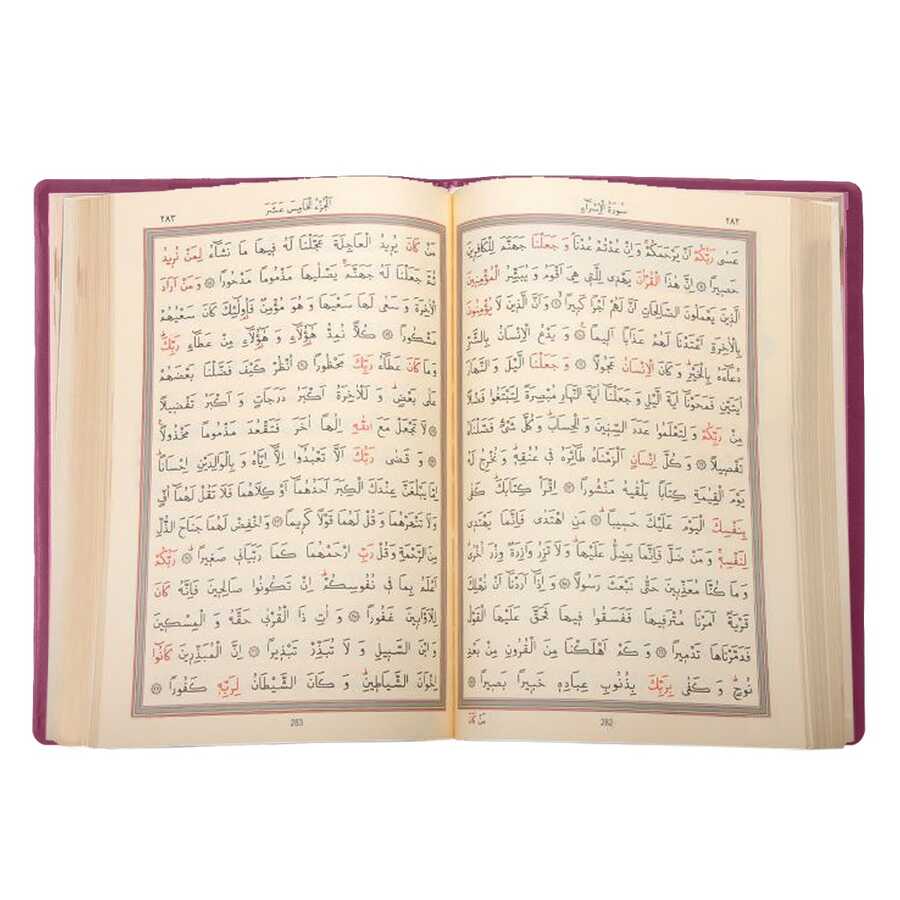 سُورَةُ الْاِسْرَاءِ
٢٨٢
عَسٰى رَبُّكُمْ اَنْ يَرْحَمَكُمْۚ وَاِنْ عُدْتُمْ عُدْنَاۢ وَ جَعَلْنَا جَهَنَّمَ لِلْكَافِرٖينَ
حَصٖيرًا ﴿٨﴾ اِنَّ هٰذَا الْقُرْاٰنَ يَهْدٖى لِلَّتٖى هِىَ اَقْوَمُ وَ يُبَشِّرُ الْمُؤْمِنٖينَ
الَّذٖينَ يَعْمَلُونَ الصَّالِحَاتِ اَنَّ لَهُمْ اَجْرًا كَبٖيرًاۙ ﴿٩﴾ وَ اَنَّ الَّذٖينَ لَا يُؤْمِنُونَ
بِالْاٰخِرَةِ اَعْتَدْنَا لَهُمْ عَذَابًا اَلٖيمًا ﴿١٠﴾ وَ يَدْعُ الْاِنْسَانُ بِالشَّرِّ
دُعَٓاءَهُ بِالْخَيْرِؕ وَ كَانَ الْاِنْسَانُ عَجُولًا ﴿١١﴾ وَ جَعَلْنَا الَّيْلَ وَ النَّهَارَ
اٰيَتَيْنِ فَمَحَوْنَٓا اٰيَةَ الَّيْلِ وَ جَعَلْنَٓا اٰيَةَ النَّهَارِ مُبْصِرَةً لِتَبْتَغُوا فَضْلًا
مِنْ رَبِّكُمْ وَ لِتَعْلَمُوا عَدَدَ السِّنٖينَ وَ الْحِسَابَؕ وَ كُلَّ شَىْءٍ فَصَّلْنَاهُ
تَفْصٖيلًا ﴿١٢﴾ وَ كُلَّ اِنْسَانٍ اَلْزَمْنَاهُ طَٓائِرَهُ فٖى عُنُقِهٖؕ وَ نُخْرِجُ لَهُ
يَوْمَ الْقِيٰمَةِ كِتَابًا يَلْقٰيهُ مَنْشُورًا ﴿١٣﴾ اِقْرَأْ كِتَابَكَؕ كَفٰى
بِنَفْسِكَ الْيَوْمَ عَلَيْكَ حَسٖيبًاؕ ﴿١٤﴾ مَنِ اهْتَدٰى فَاِنَّمَا يَهْتَدٖى
لِنَفْسِهٖۚ وَ مَنْ ضَلَّ فَاِنَّمَا يَضِلُّ عَلَيْهَاؕ وَ لَا تَزِرُ وَازِرَةٌ وِزْرَ اُخْرٰىؕ
وَ مَا كُنَّا مُعَذِّبٖينَ حَتّٰى نَبْعَثَ رَسُولًا ﴿١٥﴾ وَ اِذَٓا اَرَدْنَٓا اَنْ نُهْلِكَ
قَرْيَةً اَمَرْنَا مُتْرَفٖيهَا فَفَسَقُوا فٖيهَا فَحَقَّ عَلَيْهَا الْقَوْلُ
فَدَمَّرْنَاهَا تَدْمٖيرًا ﴿١٦﴾ وَ كَمْ اَهْلَكْنَا مِنَ الْقُرُونِ مِنْ بَعْدِ
نُوحٍؕ وَ كَفٰى بِرَبِّكَ بِذُنُوبِ عِبَادِهٖ خَبٖيرًا بَصٖيرًا ﴿١٧﴾
282
مَنْ كَانَ
اَلْجُزْءُ الْخَامِسَ عَشَرَ
٢٨٣
مَنْ كَانَ يُرٖيدُ الْعَاجِلَةَ عَجَّلْنَا لَهُ فٖيهَا مَا نَشَٓاءُ لِمَنْ نُرٖيدُ
ثُمَّ جَعَلْنَا لَهُ جَهَنَّمَۚ يَصْلٰيهَا مَذْمُومًا مَدْحُورًا ﴿١٨﴾ وَ مَنْ اَرَادَ
الْاٰخِرَةَ وَ سَعٰى لَهَا سَعْيَهَا وَ هُوَ مُؤْمِنٌ فَاُولٰٓئِكَ كَانَ سَعْيُهُمْ
مَشْكُورًا ﴿١٩﴾ كُلًّا نُمِدُّ هٰٓؤُلَٓاءِ وَ هٰٓؤُلَٓاءِ مِنْ عَطَٓاءِ رَبِّكَؕ
وَ مَا كَانَ عَطَٓاءُ رَبِّكَ مَحْظُورًا ﴿٢٠﴾ اُنْظُرْ كَيْفَ فَضَّلْنَا بَعْضَهُمْ
عَلٰى بَعْضٍؕ وَ لَلْاٰخِرَةُ اَكْبَرُ دَرَجَاتٍ وَ اَكْبَرُ تَفْضٖيلًا
﴿٢١﴾ لَا تَجْعَلْ مَعَ اللّٰهِ اِلٰهًا اٰخَرَ فَتَقْعُدَ مَذْمُومًا مَخْذُولًاۚ
﴿٢٢﴾ وَ قَضٰى رَبُّكَ اَلَّا تَعْبُدُٓوا اِلَّٓا اِيَّاهُ وَ بِالْوَالِدَيْنِ اِحْسَانًاؕ
اِمَّا يَبْلُغَنَّ عِنْدَكَ الْكِبَرَ اَحَدُهُمَٓا اَوْ كِلَاهُمَا فَلَا تَقُلْ لَهُمَٓا اُفٍّ
وَ لَا تَنْهَرْهُمَا وَ قُلْ لَهُمَا قَوْلًا كَرٖيمًا ﴿٢٣﴾ وَ اخْفِضْ لَهُمَا جَنَاحَ الذُّلِّ
مِنَ الرَّحْمَةِ وَ قُلْ رَبِّ ارْحَمْهُمَا كَمَا رَبَّيَانٖى صَغٖيرًاؕ ﴿٢٤﴾ رَبُّكُمْ
اَعْلَمُ بِمَا فٖى نُفُوسِكُمْؕ اِنْ تَكُونُوا صَالِحٖينَ فَاِنَّهُ كَانَ
لِلْاَوَّابٖينَ غَفُورًا ﴿٢٥﴾ وَ اٰتِ ذَا الْقُرْبٰى حَقَّهُ وَ الْمِسْكٖينَ
وَ ابْنَ السَّبٖيلِ وَ لَا تُبَذِّرْ تَبْذٖيرًا ﴿٢٦﴾ اِنَّ الْمُبَذِّرٖينَ كَانُٓوا
اِخْوَانَ الشَّيَاطٖينِؕ وَ كَانَ الشَّيْطَانُ لِرَبِّهٖ كَفُورًا ﴿٢٧﴾
283